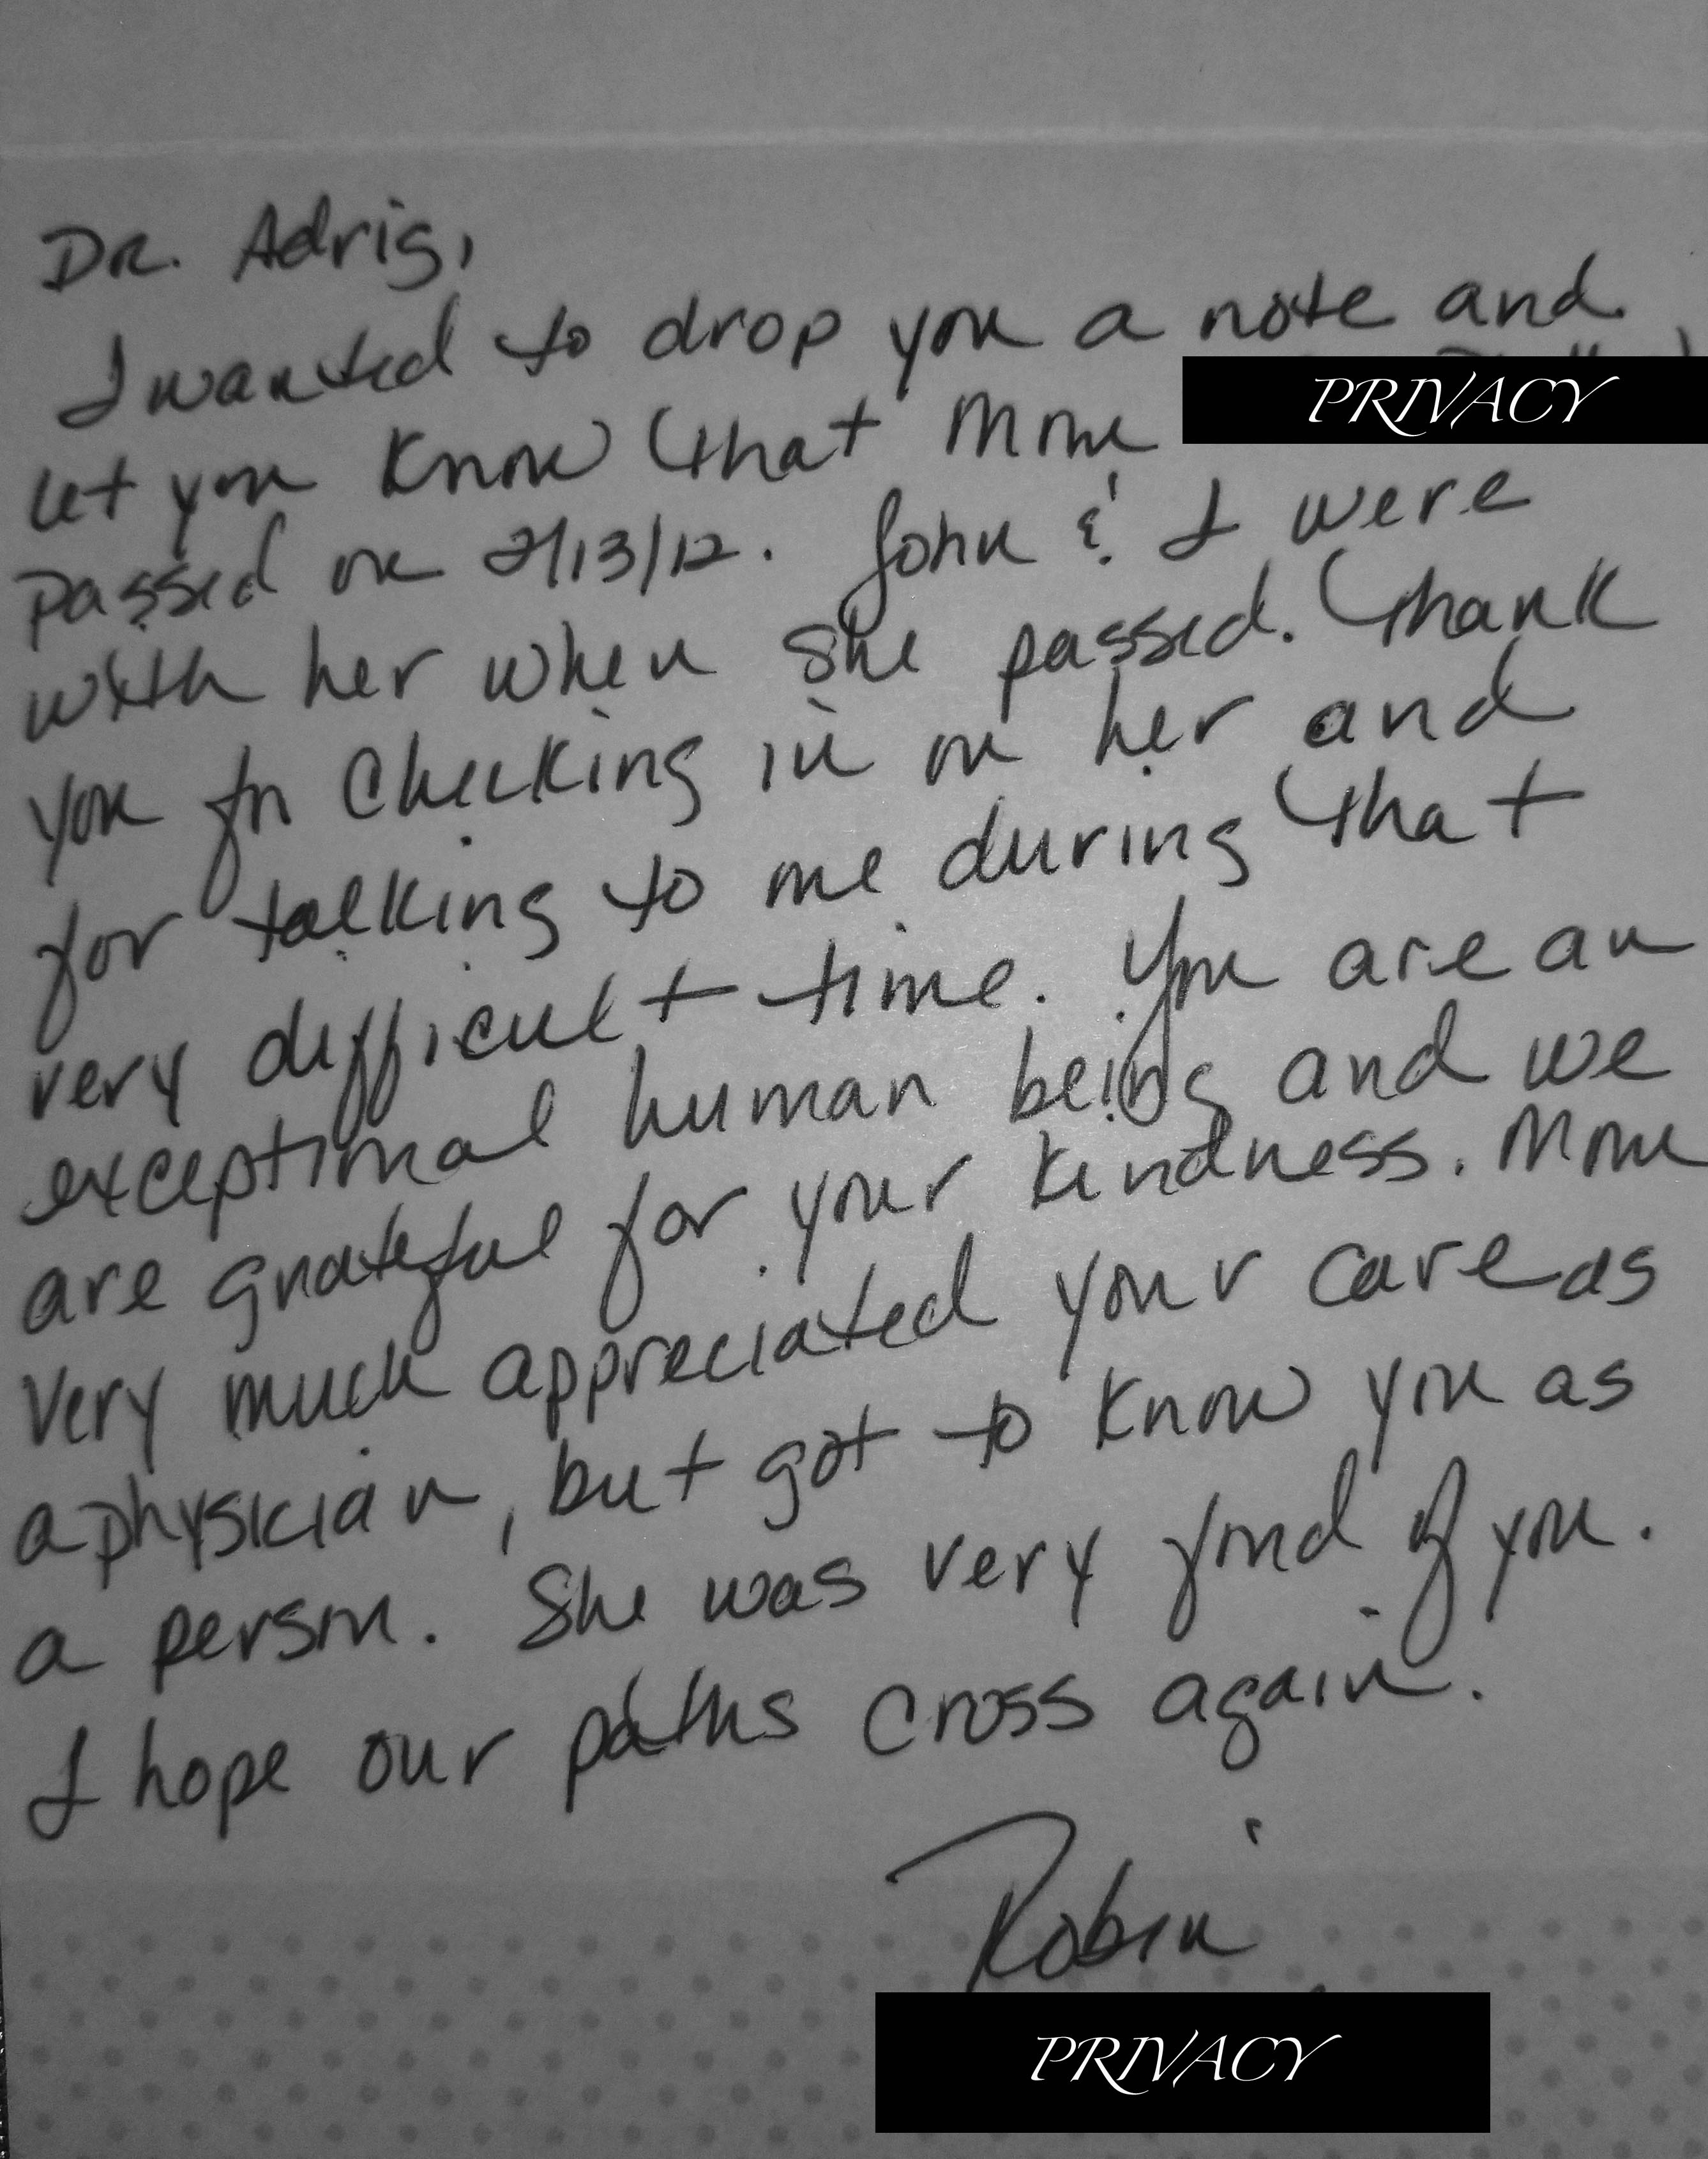 Dr. Adris,
I wanted to drop you a note and
let you know that Mom PRIVACY
passed on 2/13/12. John & I were
with her when she passed. Thank
you for checking in on her and
for talking to me during that
very difficult time. You are an
exceptional human being and we
are grateful for your kindness. Mom
very much appreciated your care as
a physician, but got to know you as
a person. She was very fond of you.
I hope our paths cross again.
Robin
PRIVACY